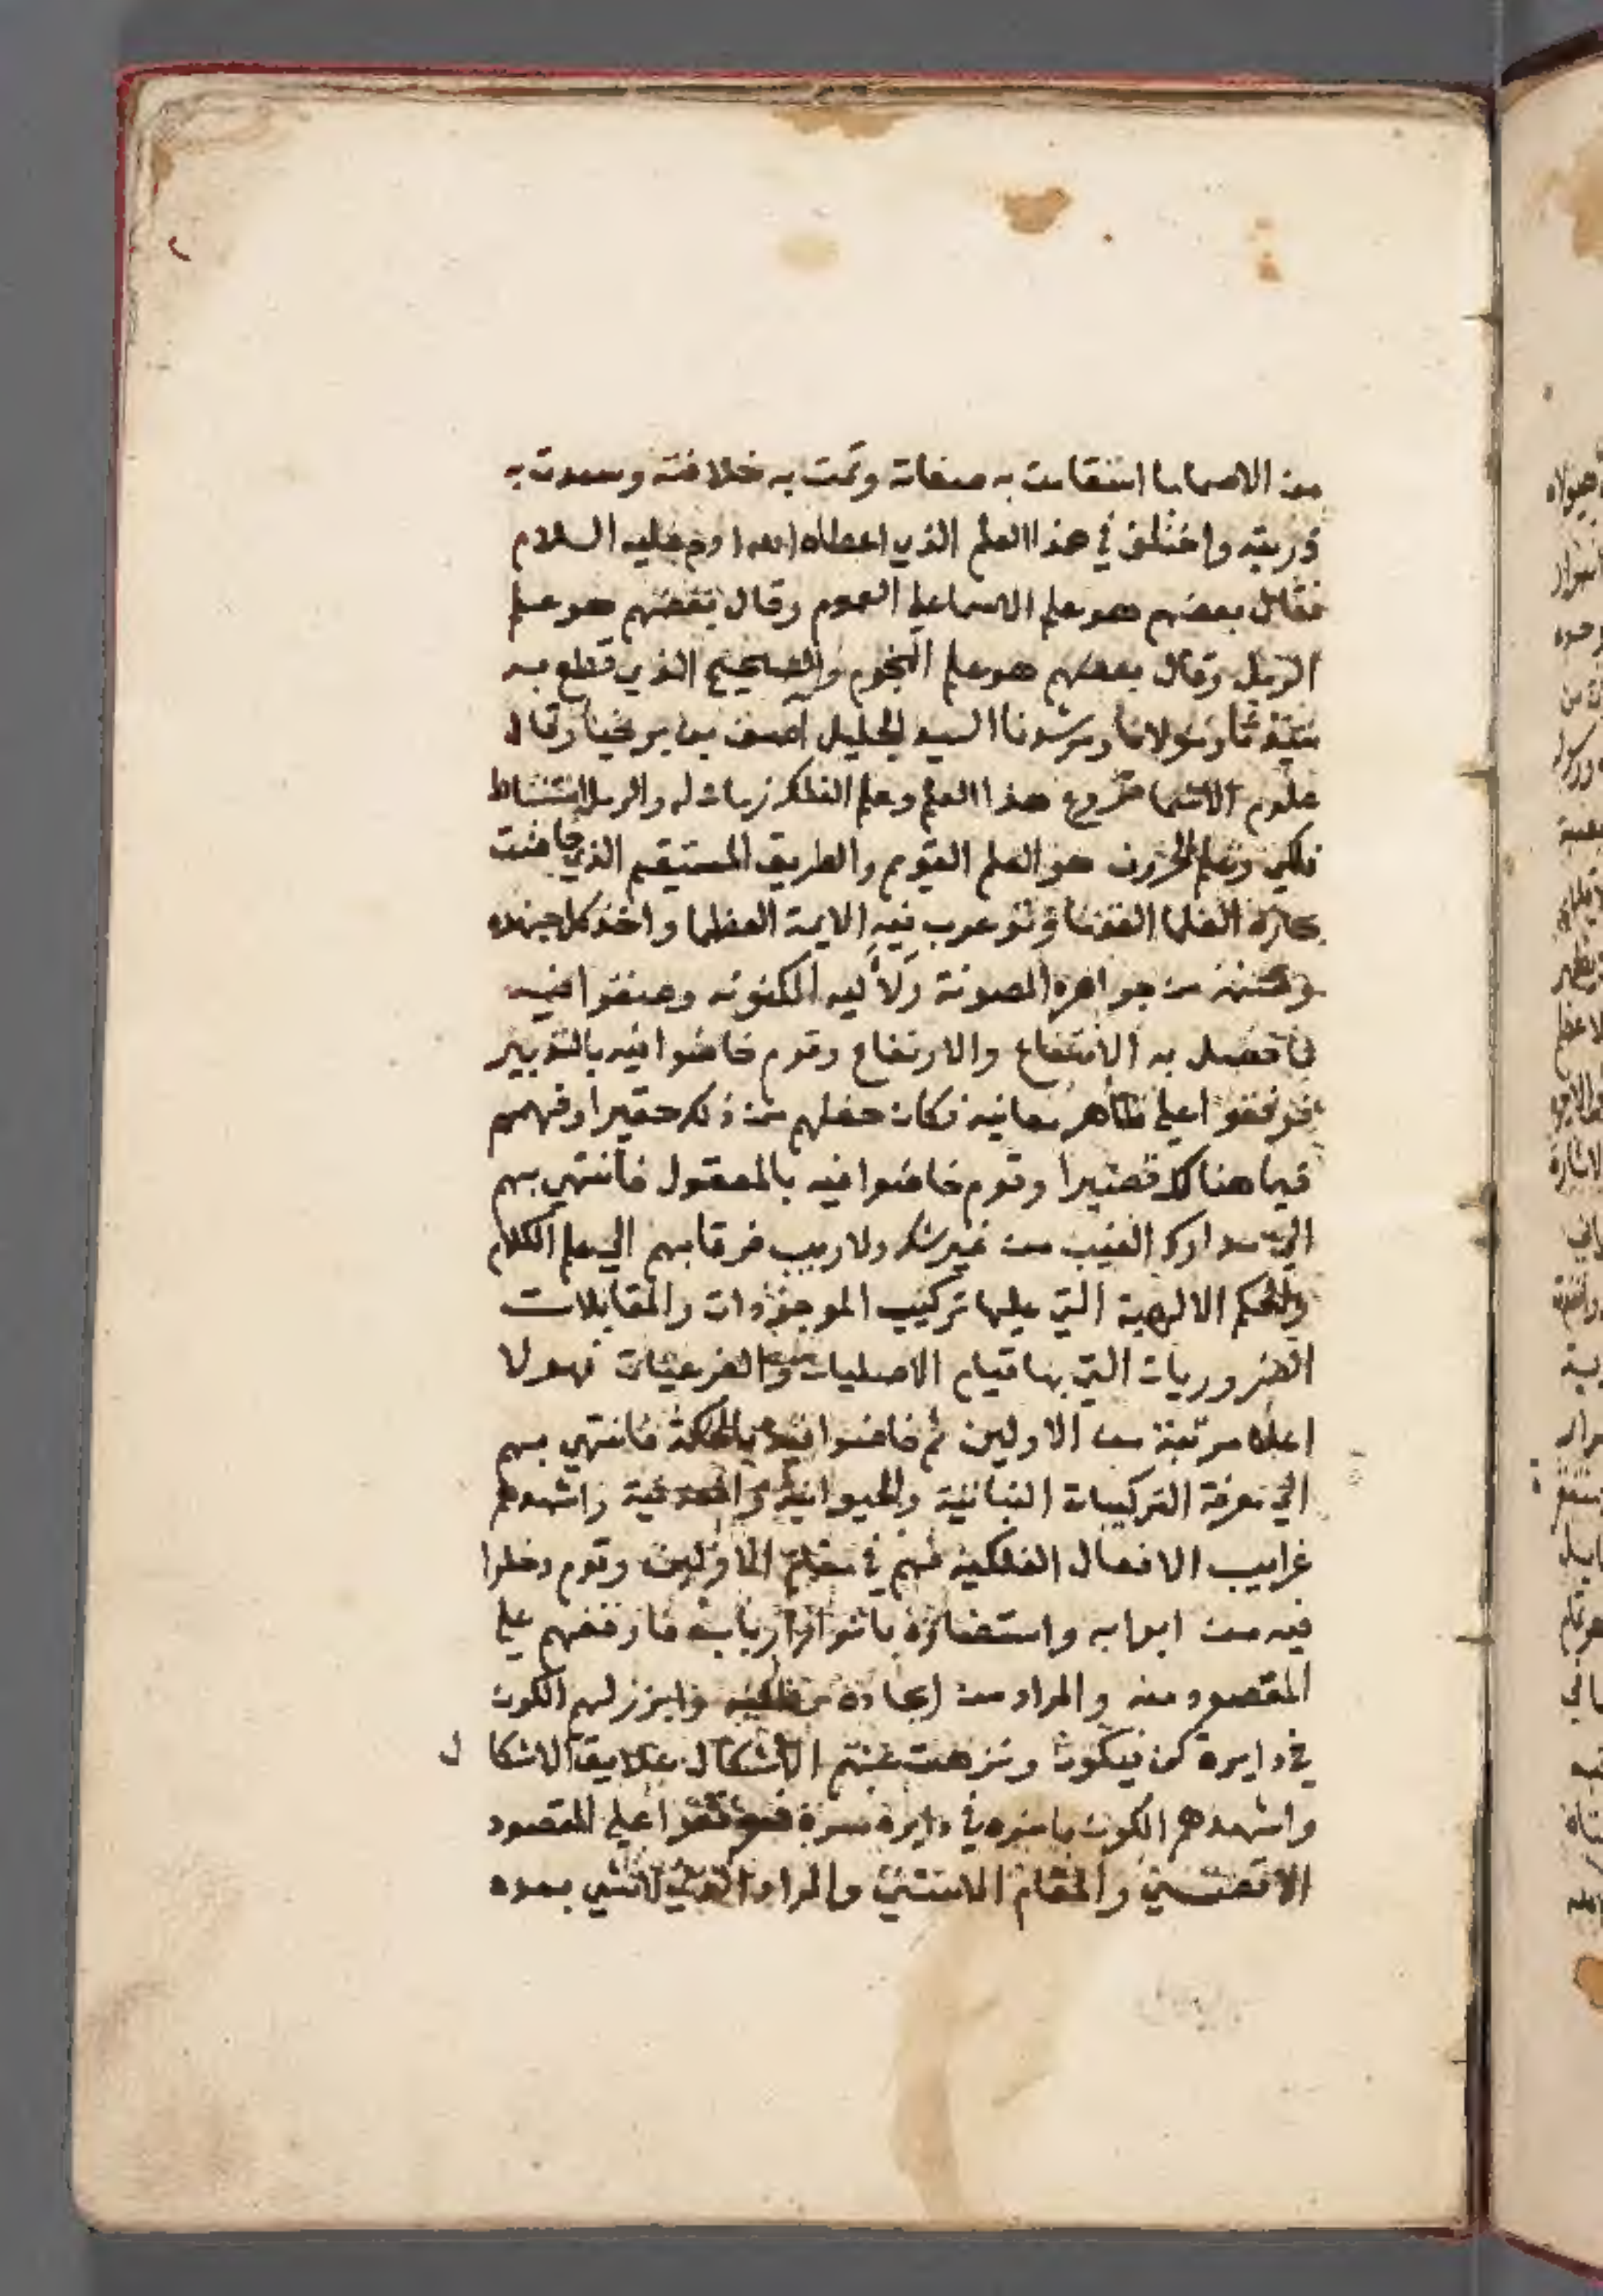 ٢
من الاسما ما استقامت به صفاته وتمت به خلافته وسعدت به
ذريته واختلف في هذا العلم الذي اعطاه الله ادم عليه السلام
فقال بعضهم هو علم الاسما علي العموم وقال بعضهم هو علم
الرمل وقال بعضهم هو علم النجوم والصحيح الذي قطع به
سيدنا ومولانا ومرشدنا السيد الجليل آصف بن برخيا وقال
علوم الاسما فروع هذا العلم وعلم الفلك زمان له والرمل استنباط
فلكي وعلم الحروف هو العلم القويم والطريق المستقيم الذي خاضت
العلما الفضلا فيه الايمة العظما واخذ كل جهده
من جواهره المصونة ولآليه المكنونه وصنفوا فيه
به الانتفاع والارتفاع وقوم خاضوا فيه بالتدبير
فوقفوا علي ظاهر معانيه فكان حظهم من ذلك حقيرا وفهمهم
فيما هنالك قصيرا وقوم خاضوا فيه بالمعقول فانتهي بهم
الي مدارك الغيب من غير شك ولا ريب فرقا بهم الي علم الكلام
والحكم الالهية التي عليها تركيب الموجودات والمقابلات
الضروريات التي بها قيام الاصليات والفرعيات فهولا
اعلا مرتبة من الاولين ثم خاضوا فيه بالحكمة فانتهي بهم
الي معرفة التركيبات النباتية والحيوانية والمعدنية واشهدهم
غرايب الافعال الفلكية فهم في مقام الاولين وقوم دخلوا
فيه من ابوابه واستضاؤه بانوار اربابه فاوقفهم علي
المقصود منه والمراد من وابرز لهم الكون
في دايرة كن فيكون ونزهت عنهم الاشكال علايق الاشكال
واشهدهم الكون باسره في دايرة سره فوقفوا علي المقصود
الاقصي والمقام الاسني والمراد الذي لا شي بعده